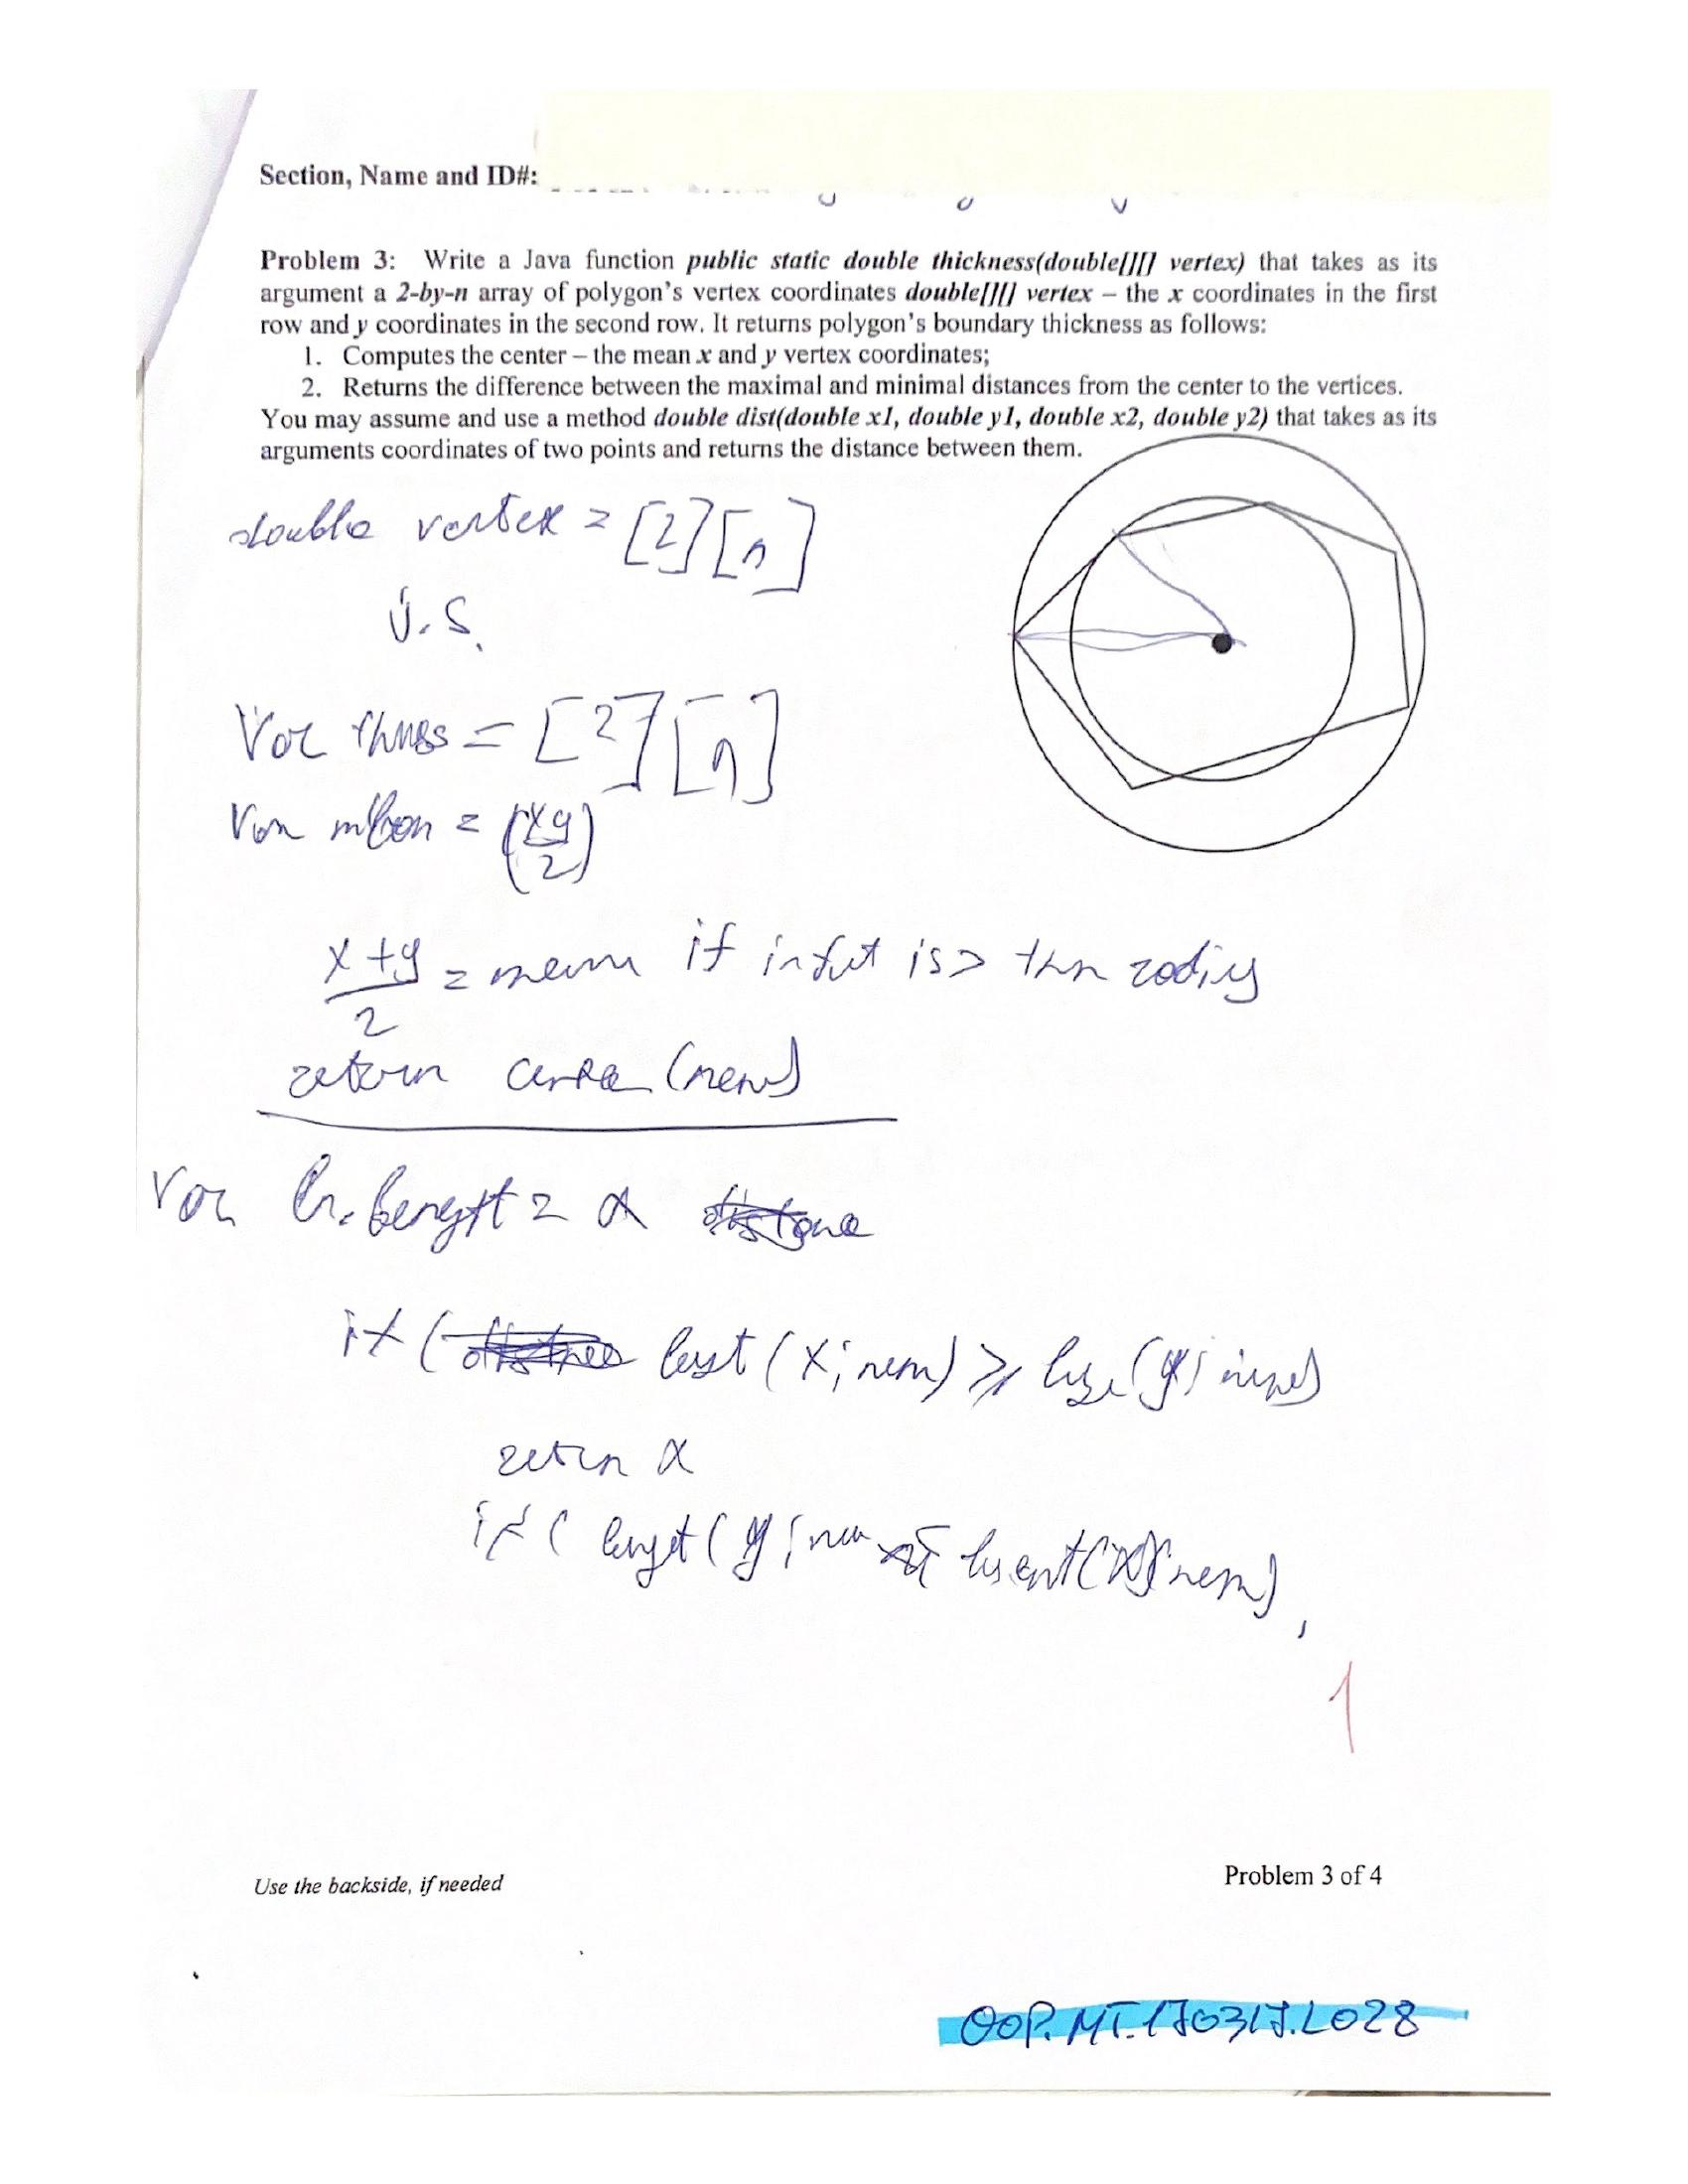 Section, Name and ID#:
Problem 3: Write a Java function public static double thickness(double[][] vertex) that takes as its
argument a 2-by-n array of polygon's vertex coordinates double[][] vertex – the x coordinates in the first
row and y coordinates in the second row. It returns polygon's boundary thickness as follows:
1. Computes the center – the mean x and y vertex coordinates;
2. Returns the difference between the maximal and minimal distances from the center to the vertices.
You may assume and use a method double dist(double x1, double y1, double x2, double y2) that takes as its
arguments coordinates of two points and returns the distance between them.
double vertex = [2][n]
Var = [2][n]
Var = (xy/2)
x+y/2 = mean if input is > than radius
return
Var = x
if ( (x; ) ≥ (y; )
return x
if ( (y;
1
Use the backside, if needed
Problem 3 of 4
OOP.MT.170317.L028